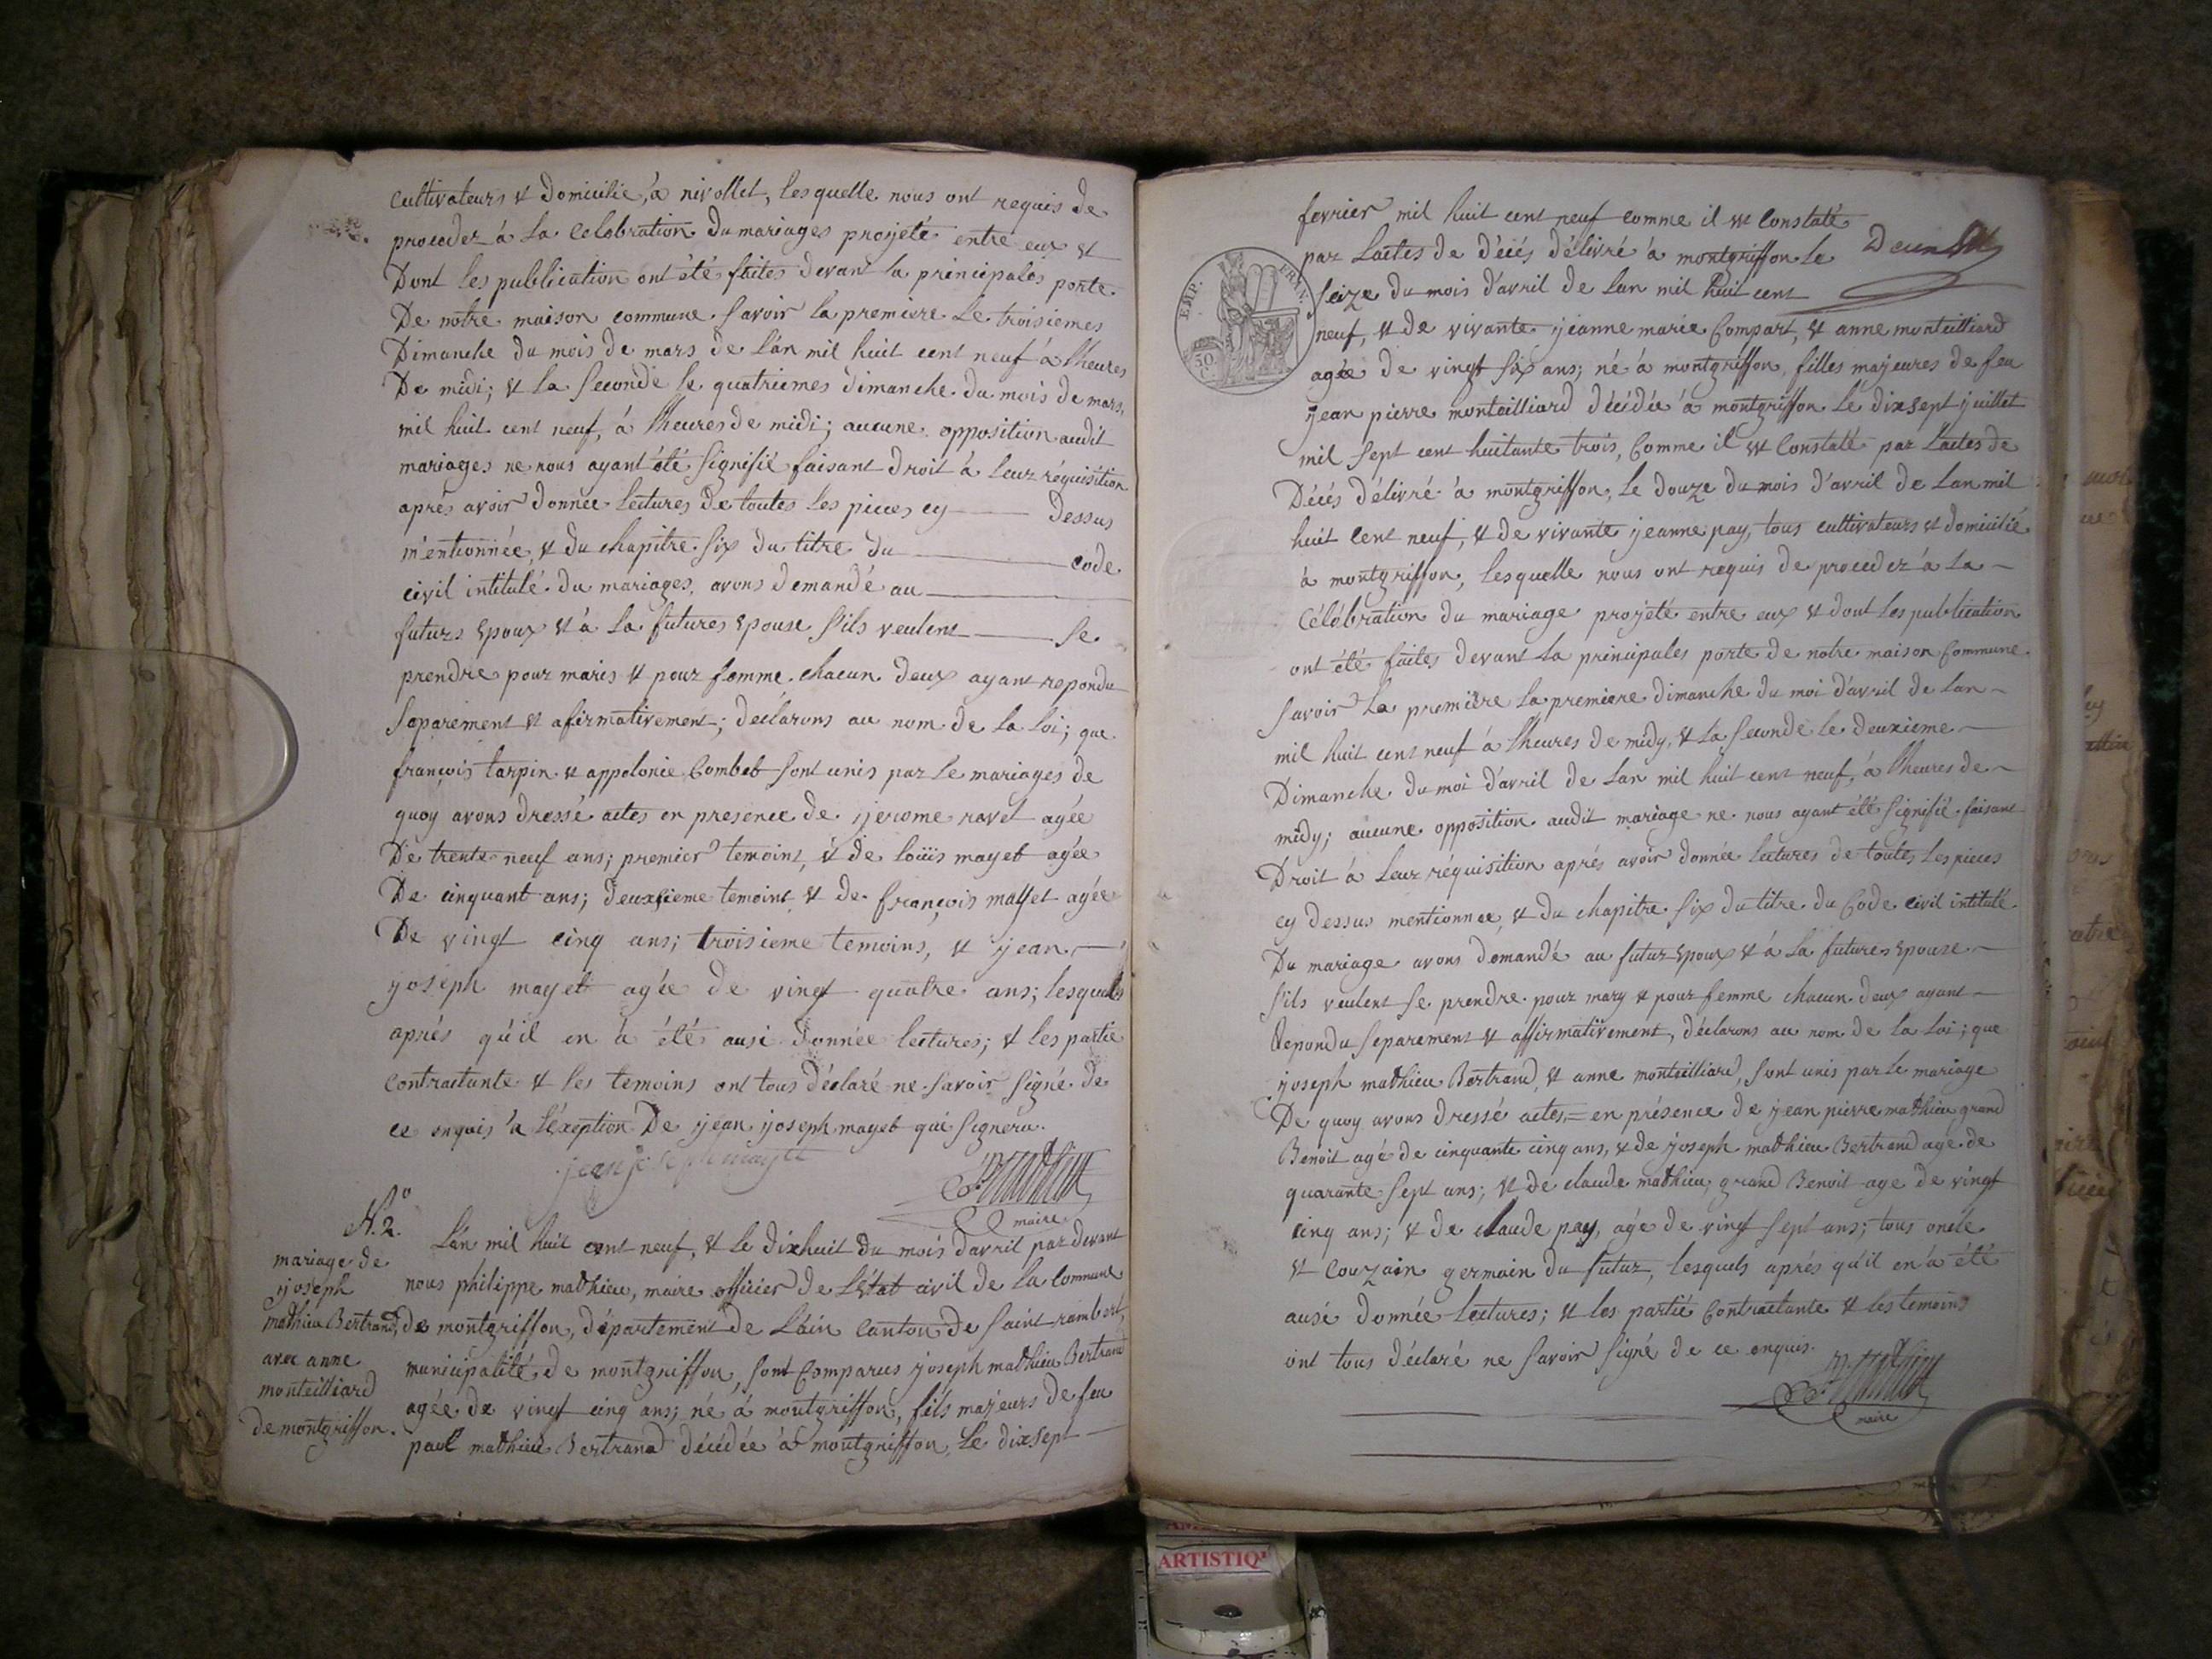 cultivateurs et domicilié, à nivollet, lesquelle nous ont requis de
proceder à la celebration du mariages projeté entre eux et
Dont les publication ont été faites devant la principales porte
De notre maison commune. savoir la premiere le troisiemes
Dimanche du mois de mars de l'an mil huit cent neuf à l'heures
De midi; et la seconde le quatriemes dimanche du mois de mars,
mil huit cent neuf, à l'heures de midi; aucune opposition audit
mariages ne nous ayant été signifié faisant droit à leur réquisition
après avoir donnée lectures de toutes les pieces cy dessus
mentionnée, et du chapitre six du titre du code
civil intitulé du mariages, avons demandé au
futurs epoux et à la futures epouse s'ils veulent se
prendre pour maris et pour femme. chacun deux ayant repondu
separement et afirmativement; declarons au nom de la loi; que
françois tarpin et appolonie Combet sont unis par le mariages de
quoy avons dressé actes en presence de jjerome ravet agée
De trente neuf ans; premier temoint, et de loüis mayet agée
De cinquant ans; deuxsieme temoint, et de françois mayet agée
De vingt cinq ans; troisieme temoins, et jjean
jjoseph mayet agée de vingt quatre ans; lesquels
après qu'il en à été ausi donnée lectures; et les partie
contractante et les temoins ont tous déclaré ne savoir signé de
ce enquis à l'exeption De jjean jjoseph mayet qui signera.
jean joseph mayet
maire
N.° 2.
mariage de
jjoseph
mathieu Bertrand,
avec anne
monteilliard
de montgriffon.
L'an mil huit cent neuf, et le dixhuit du mois d'avril par devant
nous philippe mathieu, maire officier de l'état civil de la Commune
de montgriffon, département de l'ain Canton de saint rambert,
municipalité de montgriffon, sont Comparus jjoseph mathieu Bertrand
agée de vingt cinq ans; né à montgriffon, fils majeurs de feu
paul mathieu Bertrand décédée à montgriffon, le dixsept
fevrier mil huit cent neuf comme il est Constaté
par l'actes de décés délivré à montgriffon le
seize du mois d'avril de l'an mil huit cent
EMP. FRAN.
50 C.
neuf, et de vivante jjeanne marie Compart, et anne monteilliard
agée de vingt six ans; né à montgriffon, filles majeures de feu
jjean pierre monteilliard décédée à montgriffon le dixsept juillet
mil sept cent huitante trois, Comme il est Constaté par l'actes de
Décés délivré à montgriffon, le douze du mois d'avril de l'an mil
huit cent neuf, et de vivante jjeanne pay, tous cultivateurs et domicilié
à montgriffon, lesquelle nous ont requis de proceder à la
Célébration du mariage projeté entre eux et dont les publication
ont été faites devant la principales porte de notre maison Commune.
savoir la première la premiere dimanche du moi d'avril de l'an
mil huit cent neuf à l'heures de midy, et la seconde le deuxieme
Dimanche du moi d'avril de l'an mil huit cent neuf, à l'heures de
midy; aucune opposition audit mariage ne nous ayant été signifié faisant
Droit à leur réquisition après avoir donnée lectures de toutes les pieces
cy dessus mentionnee, et du chapitre six du titre du Code civil intitulé
Du mariage avons demandé au futur epoux et à la futures epouse
s'ils veulent se prendre pour mary et pour femme chacun deux ayant
Repondu separement et affirmativement, déclarons au nom de la loi; que
jjoseph mathieu Bertrand, et anne monteilliard, sont unis par le mariage
De quoy avons dressé actes = en présence de jjean pierre mathieu grand
Benoit agé de cinquante cinq ans, et de jjoseph mathieu Bertrand age de
quarante sept ans; et de claude mathieu, grand Benoit age de vingt
cinq ans; et de claude pay, agé de vingt sept ans; tous oncle
et Couzain germain du futur, lesquels après qu'il en à été
ausé donnée lectures; et les partié Contractante et les temoins
ont tous déclaré ne savoir signé de ce enquis.
maire
ARTISTIQ